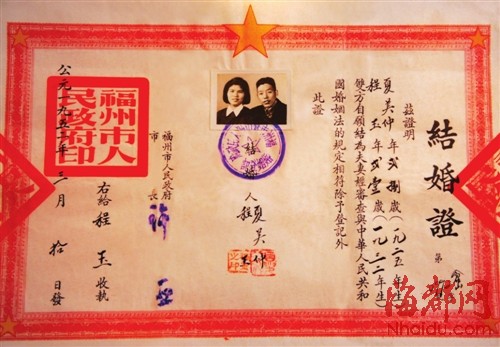 結婚證
第
茲證明
夏 仲 年 貳捌 歲(一九二五年生)
程 玉 年 貳壹 歲(一九三二年生)
雙方自願結為夫妻經審查與中華人民共和
國婚姻法的規定相符除予登記外
此證
人 夏 仲
程 玉
福州市人民政府
市長
右給 程 玉 收執
公元一九五二年三月拾日發
福州市人
民政府印
海都网
Nhaidu.com